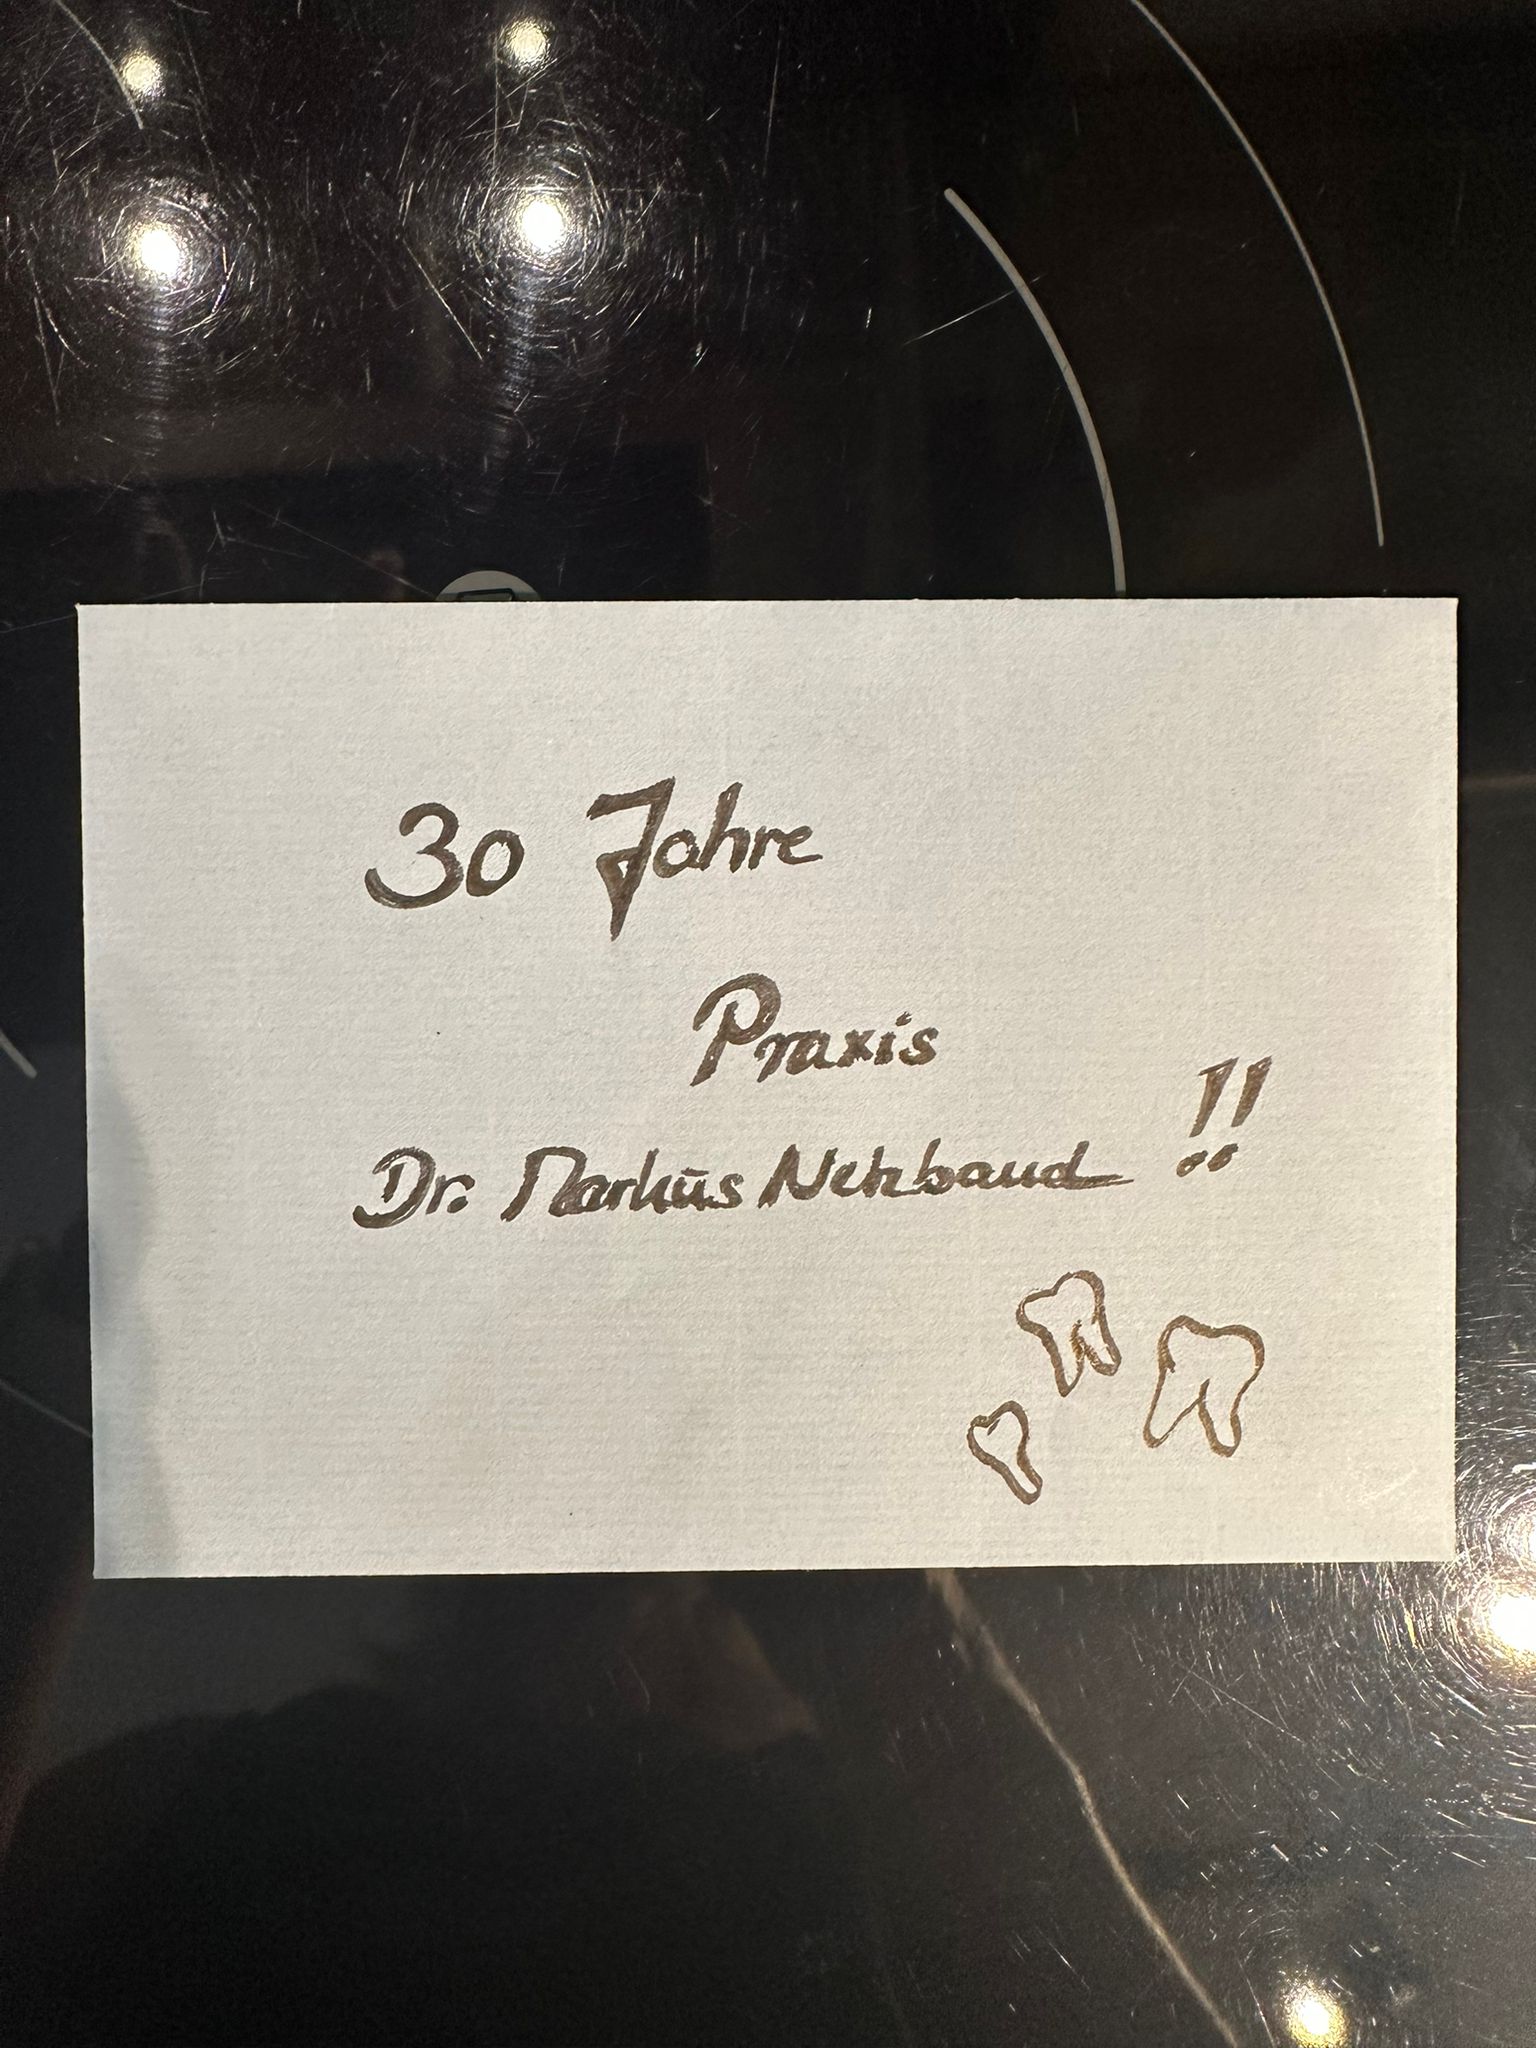 30 Jahre
Praxis
Dr. Markus Netzband !!